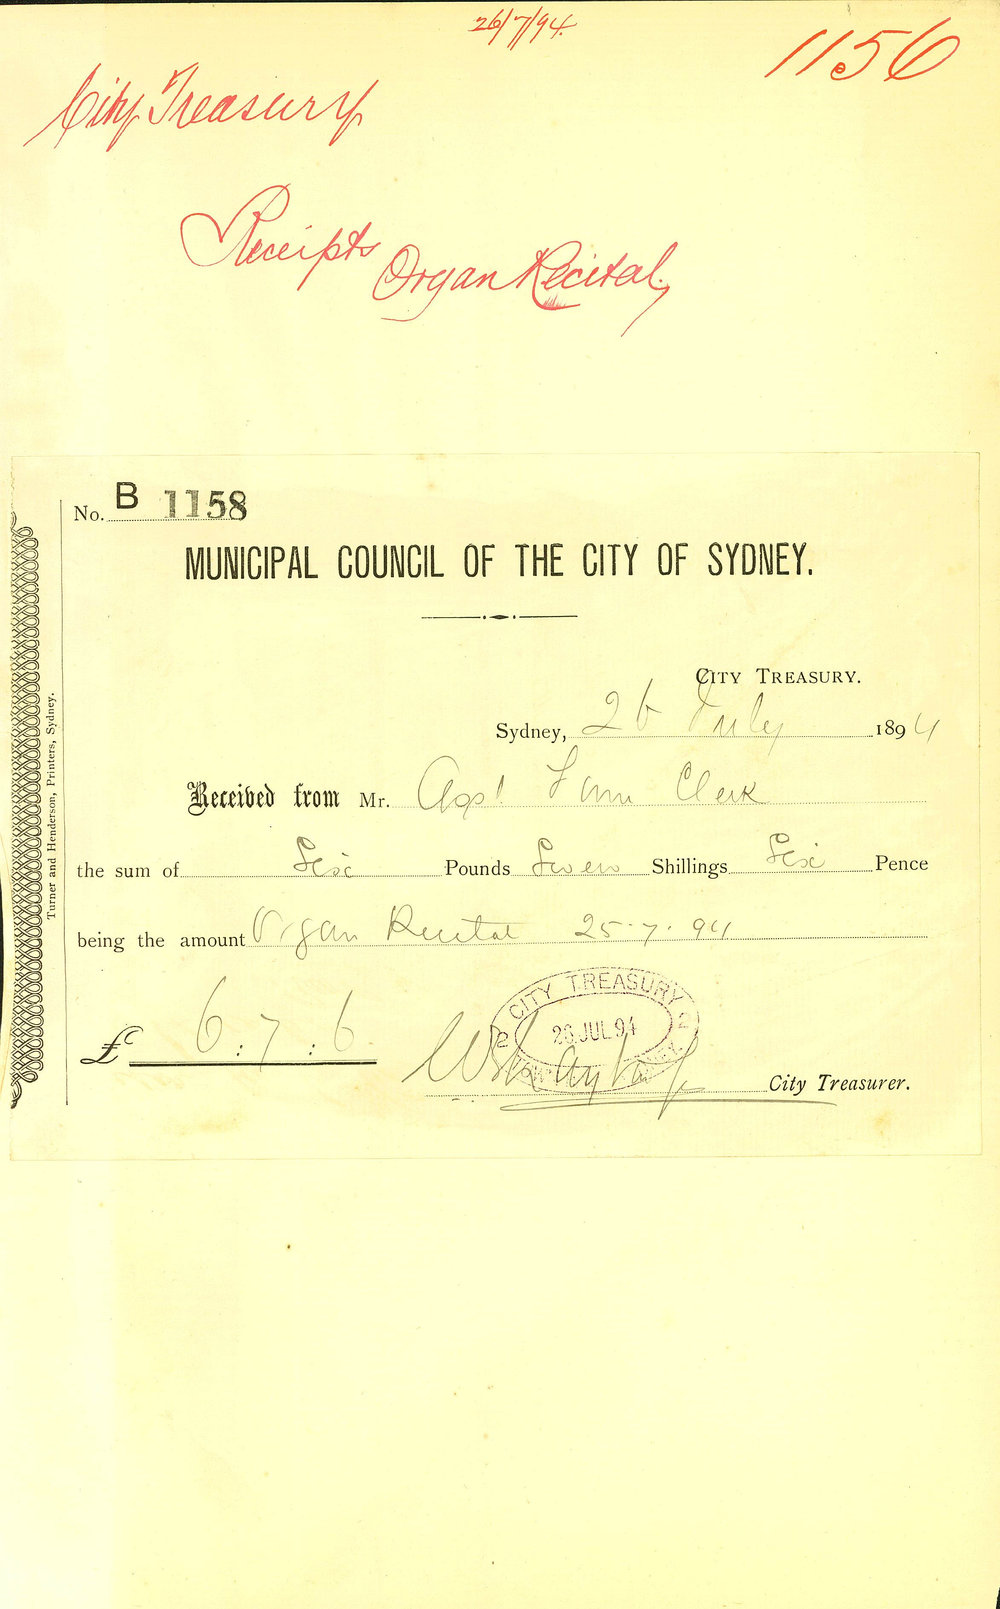 26/7/94.
1156
City Treasury
Receipts Organ Recital,
No. B 1158
MUNICIPAL COUNCIL OF THE CITY OF SYDNEY.
CITY TREASURY.
Sydney, 26 July 1894
Received from Mr. Town Clerk
the sum of Six Pounds Seven Shillings Six Pence
being the amount Organ Recital 25.7.94
CITY TREASURY
26 JUL 94
£ 6 : 7 : 6
City Treasurer.
Turner and Henderson, Printers, Sydney.